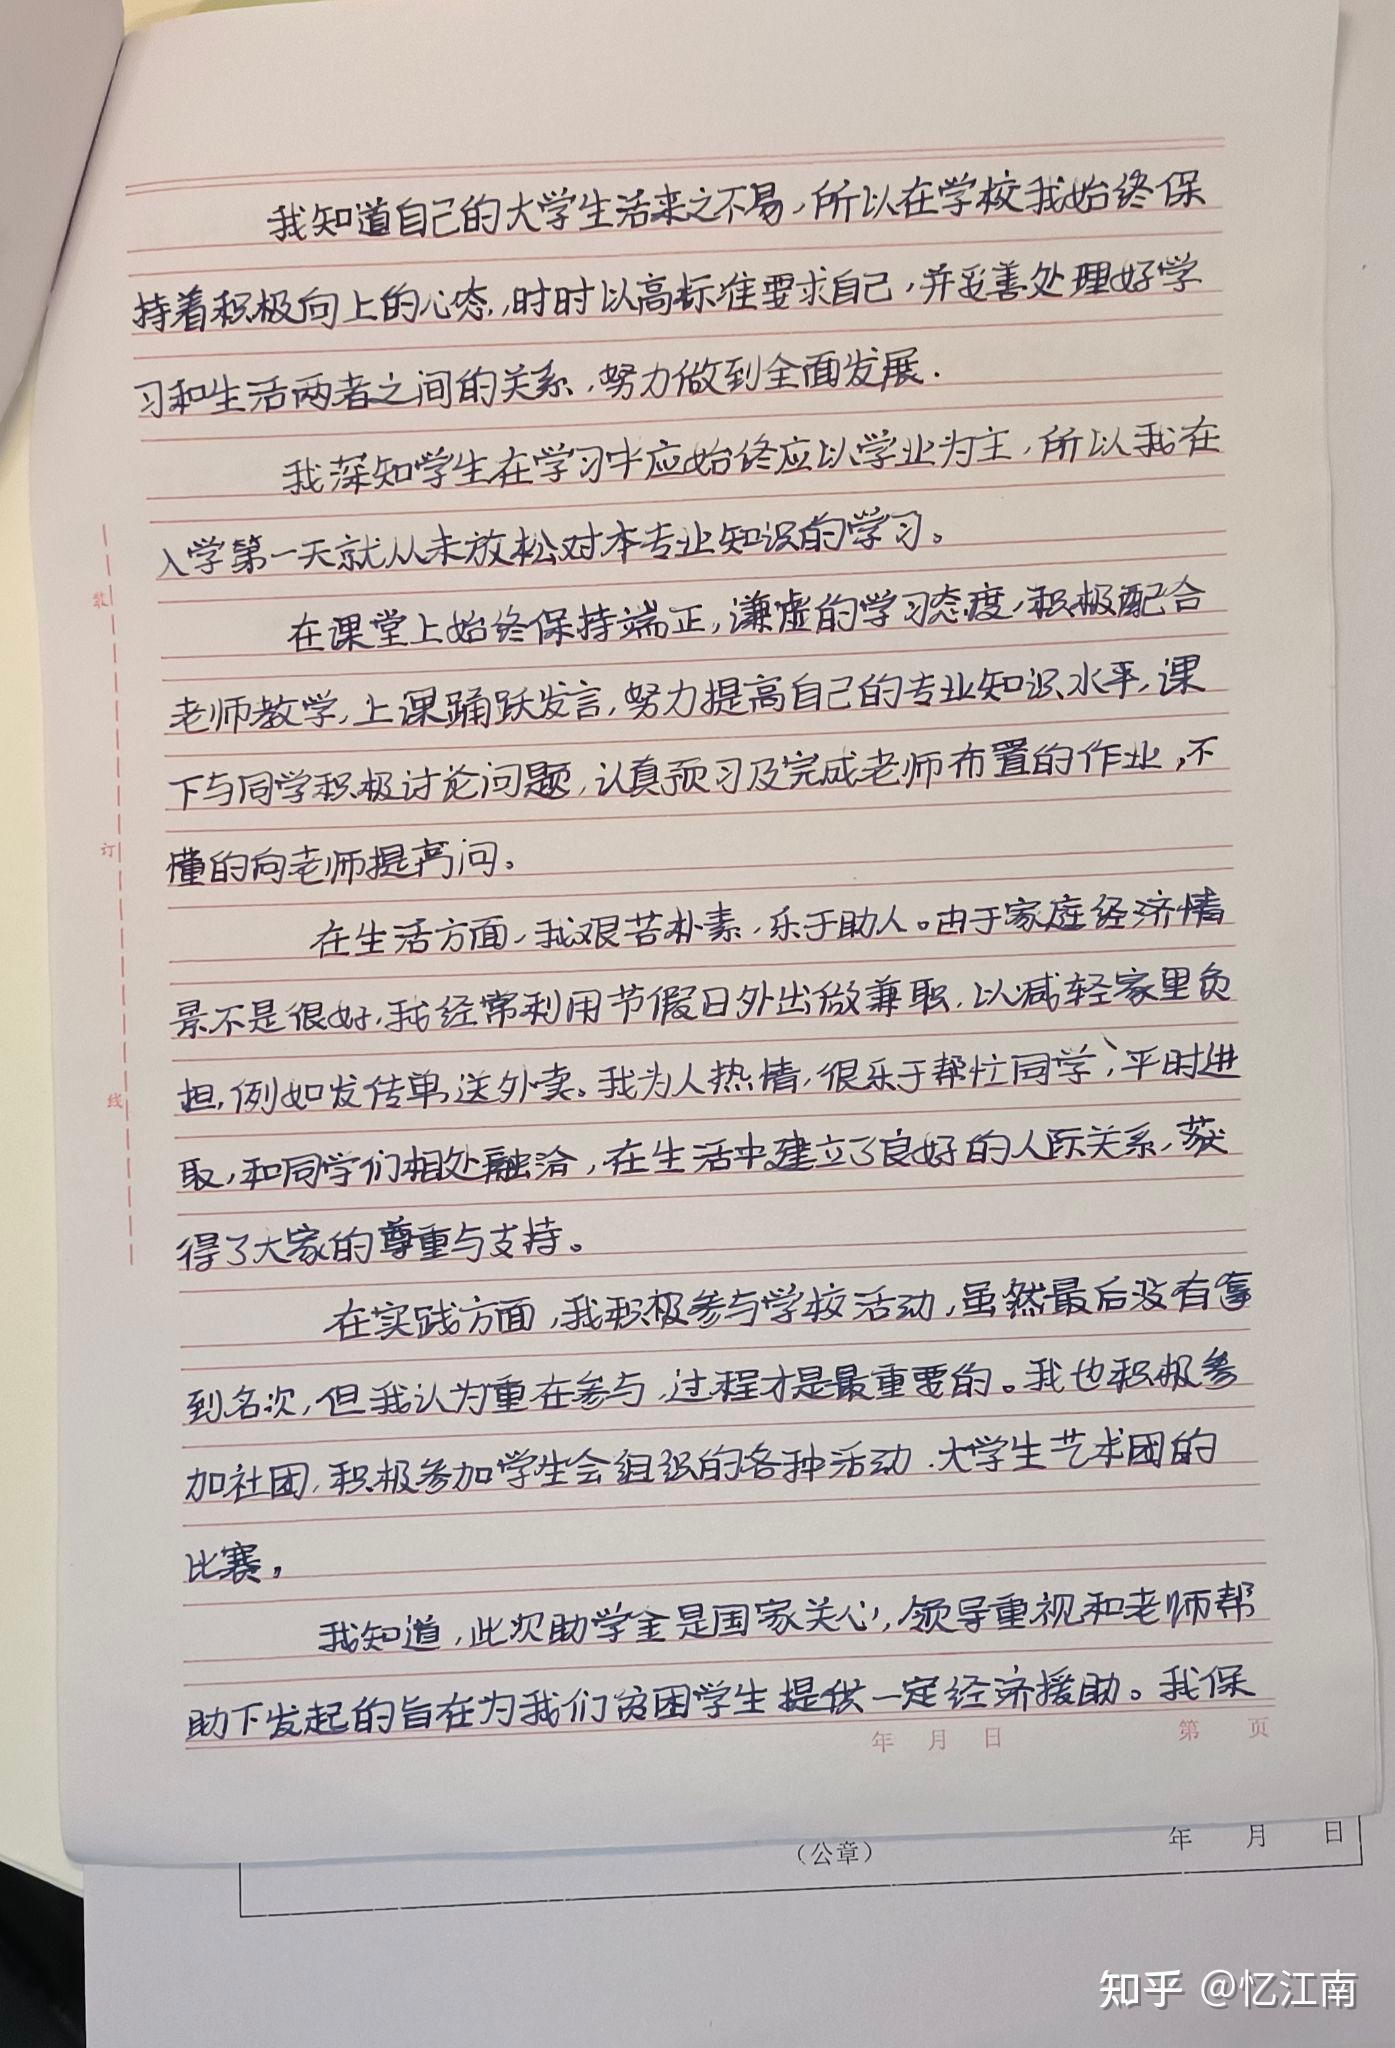 我知道自己的大学生活来之不易，所以在学校我始终保
持着积极向上的心态，时时以高标准要求自己，并妥善处理好学
习和生活两者之间的关系，努力做到全面发展.
我深知学生在学习中应始终应以学业为主，所以我在
入学第一天就从未放松对本专业知识的学习。
在课堂上始终保持端正，谦虚的学习态度，积极配合
老师教学，上课踊跃发言，努力提高自己的专业知识水平，课
下与同学积极讨论问题，认真预习及完成老师布置的作业，不
懂的向老师提高问。
在生活方面，我艰苦朴素，乐于助人。由于家庭经济情
景不是很好，我经常利用节假日外出做兼职，以减轻家里负
担，例如发传单，送外卖。我为人热情，很乐于帮忙同学，平时进
取，和同学们相处融洽，在生活中建立了良好的人际关系，获
得了大家的尊重与支持。
在实践方面，我积极参与学校活动，虽然最后没有拿
到名次，但我认为重在参与，过程才是最重要的。我也积极参
加社团，积极参加学生会组织的各种活动．大学生艺术团的
比赛，
我知道，此次助学金是国家关心，领导重视和老师帮
助下发起的旨在为我们贫困学生提供一定经济援助。我保
年 月 日 第 页
装
订
线
（公章） 年 月 日
知乎 @忆江南